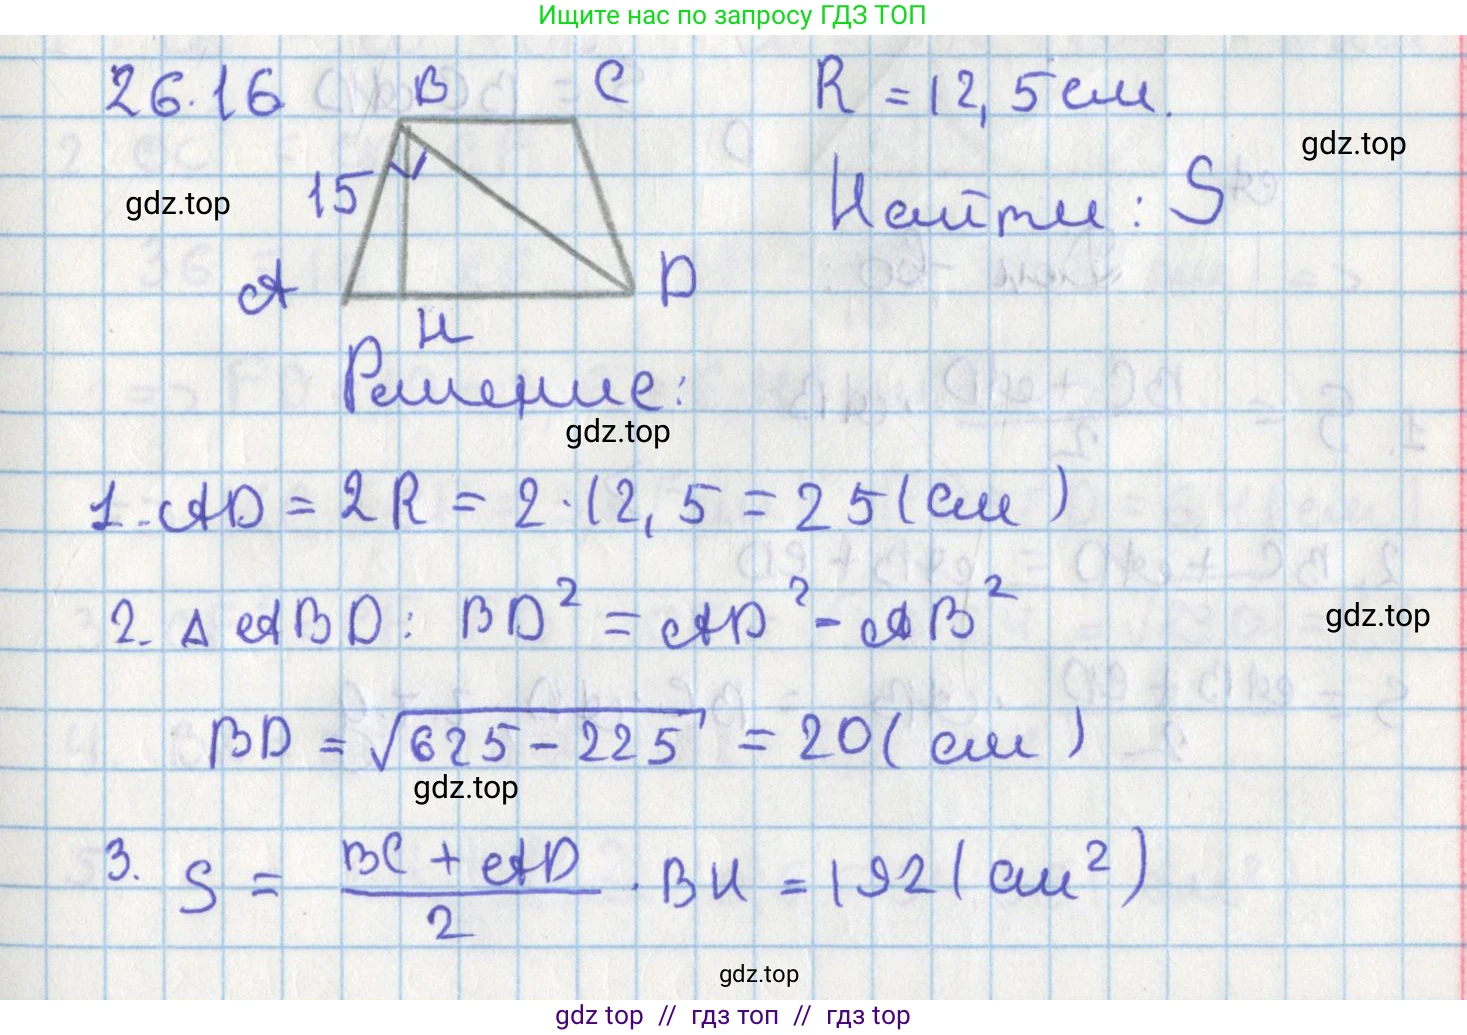 Ищите нас по запросу ГДЗ ТОП
26.16 B C R = 12,5 см.
gdz.top
15 gdz.top Найти: S
A H D
Решение:
gdz.top
1. AD = 2R = 2·12,5 = 25 (см)
2. Δ ABD: BD² = AD² - AB²
gdz.top
BD = √625 - 225 = 20 (см)
gdz.top
3. S = BC + AD / 2 · BH = 192 (см²)
gdz.top
gdz top // гдз топ // гдз top